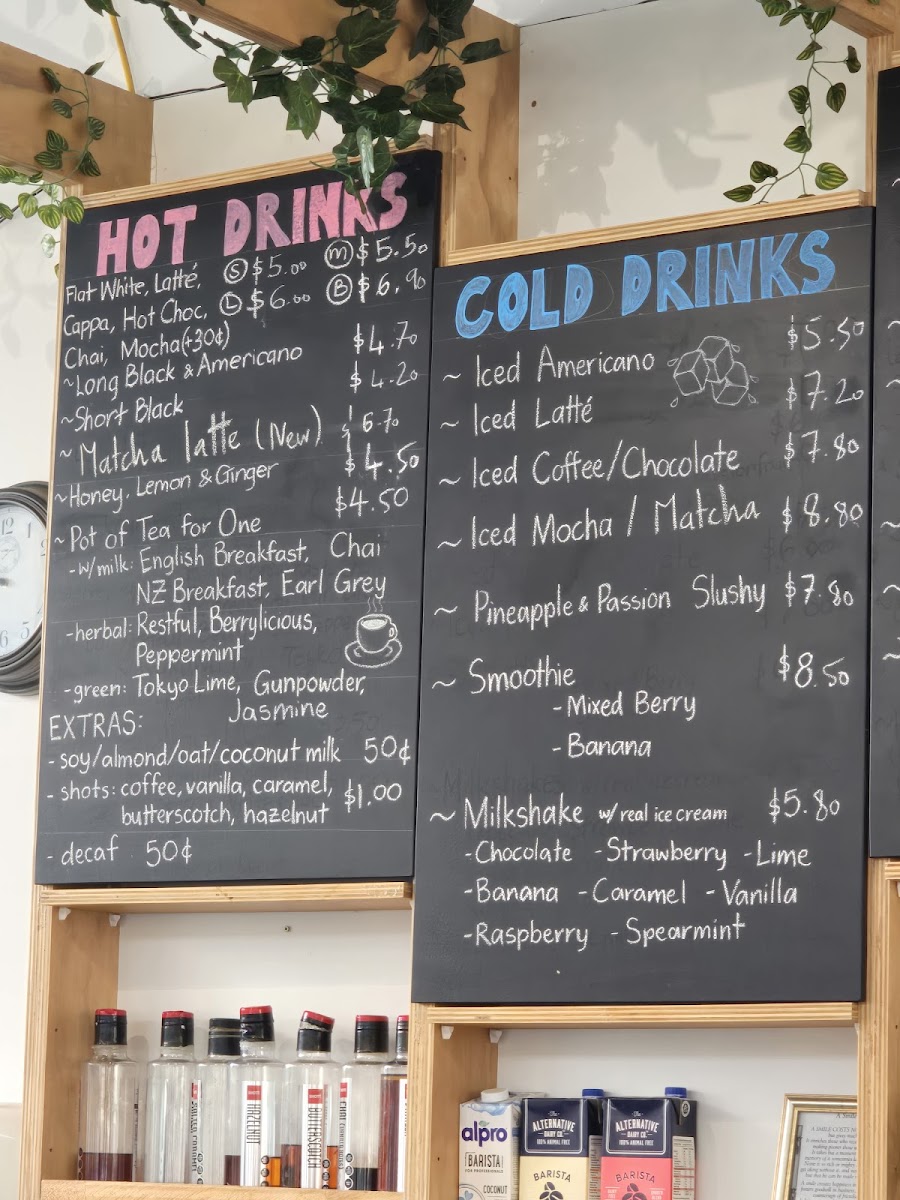 HOT DRINKS
Flat White, Latté, Ⓢ $5.00 Ⓜ $5.50
Cappa, Hot Choc, Ⓛ $6.00 Ⓑ $6.90
Chai, Mocha(+30¢)
~Long Black & Americano $4.70
~Short Black $4.20
~Matcha latte (New) $6.70
~Honey, Lemon & Ginger $4.50
~Pot of Tea for One $4.50
-w/milk: English Breakfast, Chai
NZ Breakfast, Earl Grey
-herbal: Restful, Berrylicious,
Peppermint
-green: Tokyo Lime, Gunpowder,
Jasmine
EXTRAS:
- soy/almond/oat/coconut milk 50¢
- shots: coffee, vanilla, caramel, $1.00
butterscotch, hazelnut
- decaf 50¢
COLD DRINKS
~ Iced Americano $5.50
~ Iced Latté $7.20
~ Iced Coffee/Chocolate $7.80
~ Iced Mocha / Matcha $8.80
~ Pineapple & Passion Slushy $7.80
~ Smoothie $8.50
-Mixed Berry
-Banana
~ Milkshake w/real ice cream $5.80
-Chocolate -Strawberry -Lime
-Banana -Caramel -Vanilla
-Raspberry -Spearmint
12
6
5
HAZELNUT
BUTTERSCOTCH
alpro
BARISTA
COCONUT
The
ALTERNATIVE
DAIRY CO.
100% ANIMAL FREE
BARISTA
The
ALTERNATIVE
DAIRY CO.
100% ANIMAL FREE
BARISTA